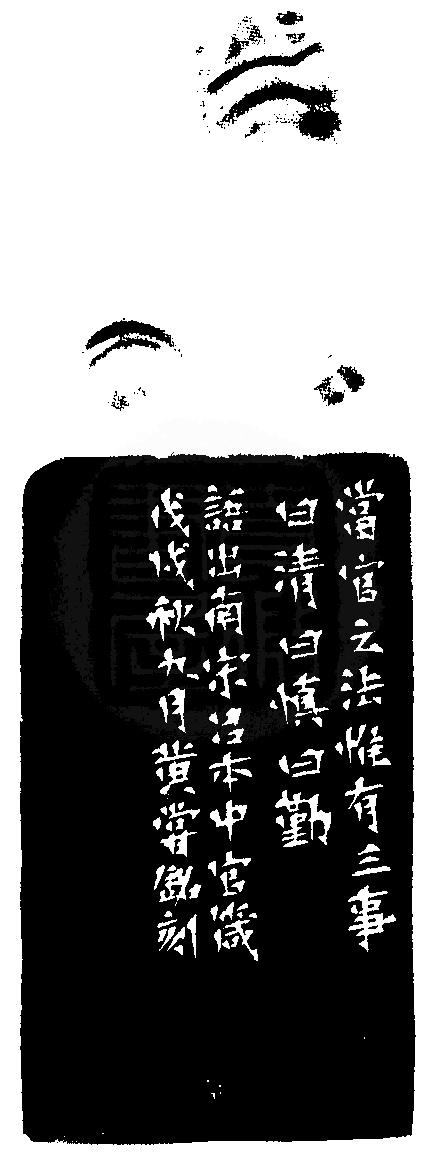 當官之法惟有三事
曰清曰慎曰勤
語出南宋呂本中官箴
戊戌秋九月黄嘗銘刻